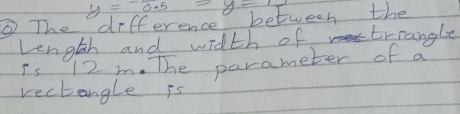 y = 0.5 = y = 1
⑥ The difference between the
Length and width of briangle
is 12 m. The parameter of a
rectangle is